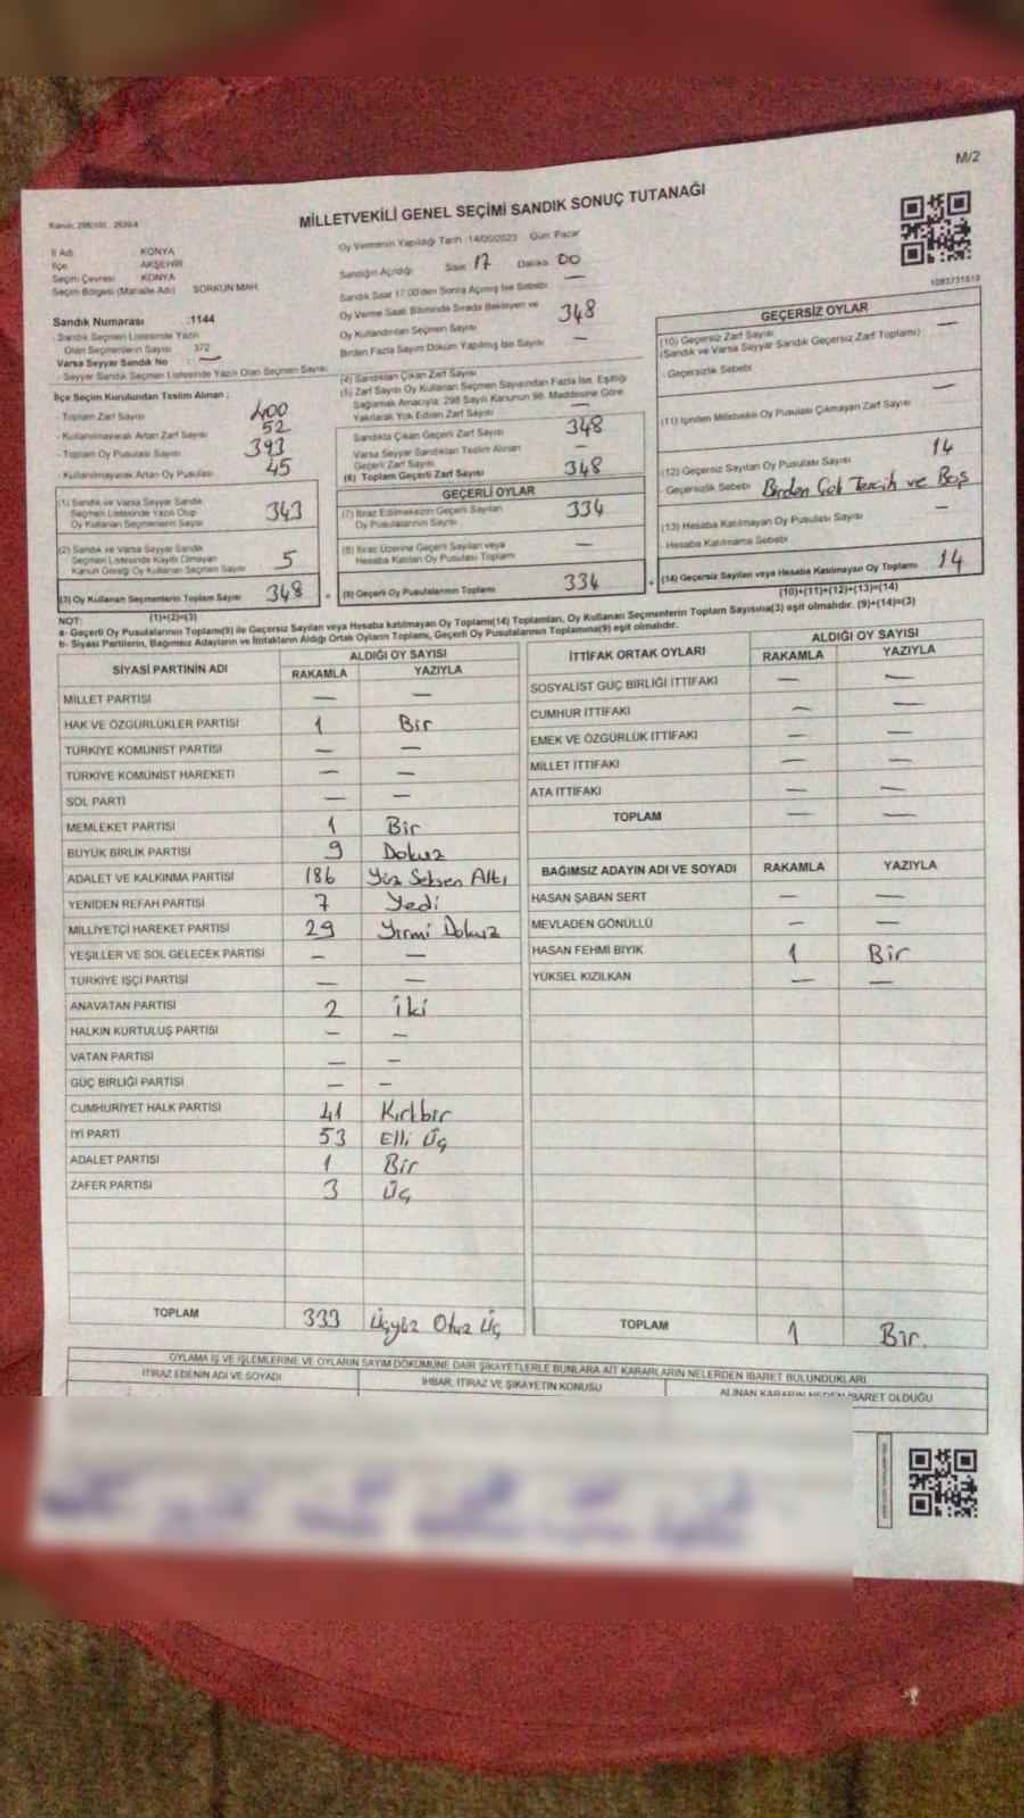 M/2
MİLLETVEKİLİ GENEL SEÇİMİ SANDIK SONUÇ TUTANAĞI
İl Adı KONYA
İlçe AKŞEHİR
Seçim Çevresi KONYA
Seçim Bölgesi (Mahalle Adı) SORKUN MAH.
Sandık Numarası :1144
Sandık Seçmen Listesinde Yazılı
Olan Seçmenlerin Sayısı 372
Varsa Seyyar Sandık No : —
- Seyyar Sandık Seçmen Listesinde Yazılı Olan Seçmen Sayısı
Oy Vermenin Yapıldığı Tarih :14/05/2023 Gün: Pazar
Sandığın Açıldığı Saat 17 Dakika 00
Sandık Saat 17:00'den Sonra Açılmış İse Sebebi —
Oy Verme Saati Bitiminde Sırada Bekleyen ve
Oy Kullandırılan Seçmen Sayısı 348
Birden Fazla Sayım Döküm Yapılmış İse Sayısı —
İlçe Seçim Kurulundan Teslim Alınan :
- Toplam Zarf Sayısı 400
- Kullanılmayarak Artan Zarf Sayısı 52
- Toplam Oy Pusulası Sayısı 393
- Kullanılmayarak Artan Oy Pusulası 45
(1) Sandık ve Varsa Seyyar Sandık
Seçmen Listesinde Yazılı Olup
Oy Kullanan Seçmenlerin Sayısı 343
(2) Sandık ve Varsa Seyyar Sandık
Seçmen Listesinde Kaydı Olmayan
Kanun Gereği Oy Kullanan Seçmen Sayısı 5
(3) Oy Kullanan Seçmenlerin Toplam Sayısı 348
(1)+(2)=(3)
(4) Sandıktan Çıkan Zarf Sayısı
(5) Zarf Sayısı Oy Kullanan Seçmen Sayısından Fazla İse, Eşitliği
Sağlamak Amacıyla, 298 Sayılı Kanunun 98. Maddesine Göre
Yakılarak Yok Edilen Zarf Sayısı —
Sandıkta Çıkan Geçerli Zarf Sayısı 348
Varsa Seyyar Sandıktan Teslim Alınan
Geçerli Zarf Sayısı —
(6) Toplam Geçerli Zarf Sayısı 348
GEÇERLİ OYLAR
(7) İtiraz Edilmeksizin Geçerli Sayılan
Oy Pusulalarının Sayısı 334
(8) İtiraz Üzerine Geçerli Sayılan veya
Hesaba Katılan Oy Pusulası Toplamı —
(9) Geçerli Oy Pusulalarının Toplamı 334
GEÇERSİZ OYLAR
(10) Geçersiz Zarf Sayısı
(Sandık ve Varsa Seyyar Sandık Geçersiz Zarf Toplamı) —
- Geçersizlik Sebebi
(11) İçinden Milletvekili Oy Pusulası Çıkmayan Zarf Sayısı —
(12) Geçersiz Sayılan Oy Pusulası Sayısı 14
- Geçersizlik Sebebi Birden Çok Tercih ve Boş
(13) Hesaba Katılmayan Oy Pusulası Sayısı —
- Hesaba Katılmama Sebebi
(14) Geçersiz Sayılan veya Hesaba Katılmayan Oy Toplamı 14
(10)+(11)+(12)+(13)=(14)
NOT:
a- Geçerli Oy Pusulalarının Toplamı(9) ile Geçersiz Sayılan veya Hesaba katılmayan Oy Toplamı(14) Toplamları, Oy Kullanan Seçmenlerin Toplam Sayısına(3) eşit olmalıdır. (9)+(14)=(3)
b- Siyasi Partilerin, Bağımsız Adayların ve İttifakların Aldığı Ortak Oyların Toplamı, Geçerli Oy Pusulalarının Toplamına(9) eşit olmalıdır.
SİYASİ PARTİNİN ADI ALDIĞI OY SAYISI
RAKAMLA YAZIYLA
MİLLET PARTİSİ — —
HAK VE ÖZGÜRLÜKLER PARTİSİ 1 Bir
TÜRKİYE KOMÜNİST PARTİSİ — —
TÜRKİYE KOMÜNİST HAREKETİ — —
SOL PARTİ — —
MEMLEKET PARTİSİ 1 Bir
BÜYÜK BİRLİK PARTİSİ 9 Dokuz
ADALET VE KALKINMA PARTİSİ 186 Yüz Seksen Altı
YENİDEN REFAH PARTİSİ 7 Yedi
MİLLİYETÇİ HAREKET PARTİSİ 29 Yirmi Dokuz
YEŞİLLER VE SOL GELECEK PARTİSİ — —
TÜRKİYE İŞÇİ PARTİSİ — —
ANAVATAN PARTİSİ 2 İki
HALKIN KURTULUŞ PARTİSİ — —
VATAN PARTİSİ — —
GÜÇ BİRLİĞİ PARTİSİ — —
CUMHURİYET HALK PARTİSİ 41 Kırkbir
İYİ PARTİ 53 Elli Üç
ADALET PARTİSİ 1 Bir
ZAFER PARTİSİ 3 Üç
TOPLAM 333 Üçyüz Otuz Üç
İTTİFAK ORTAK OYLARI ALDIĞI OY SAYISI
RAKAMLA YAZIYLA
SOSYALİST GÜÇ BİRLİĞİ İTTİFAKI — —
CUMHUR İTTİFAKI — —
EMEK VE ÖZGÜRLÜK İTTİFAKI — —
MİLLET İTTİFAKI — —
ATA İTTİFAKI — —
TOPLAM — —
BAĞIMSIZ ADAYIN ADI VE SOYADI RAKAMLA YAZIYLA
HASAN ŞABAN SERT — —
MEVLADEN GÖNÜLLÜ — —
HASAN FEHMİ BIYIK 1 Bir
YÜKSEL KIZILKAN — —
TOPLAM 1 Bir.
OYLAMA İŞ VE İŞLEMLERİNE VE OYLARIN SAYIM DÖKÜMÜNE DAİR ŞİKAYETLERLE BUNLARA AİT KARARLARIN NELERDEN İBARET BULUNDUKLARI
İTİRAZ EDENİN ADI VE SOYADI
İHBAR, İTİRAZ VE ŞİKAYETİN KONUSU
ALINAN KARARIN NEDEN İBARET OLDUĞU